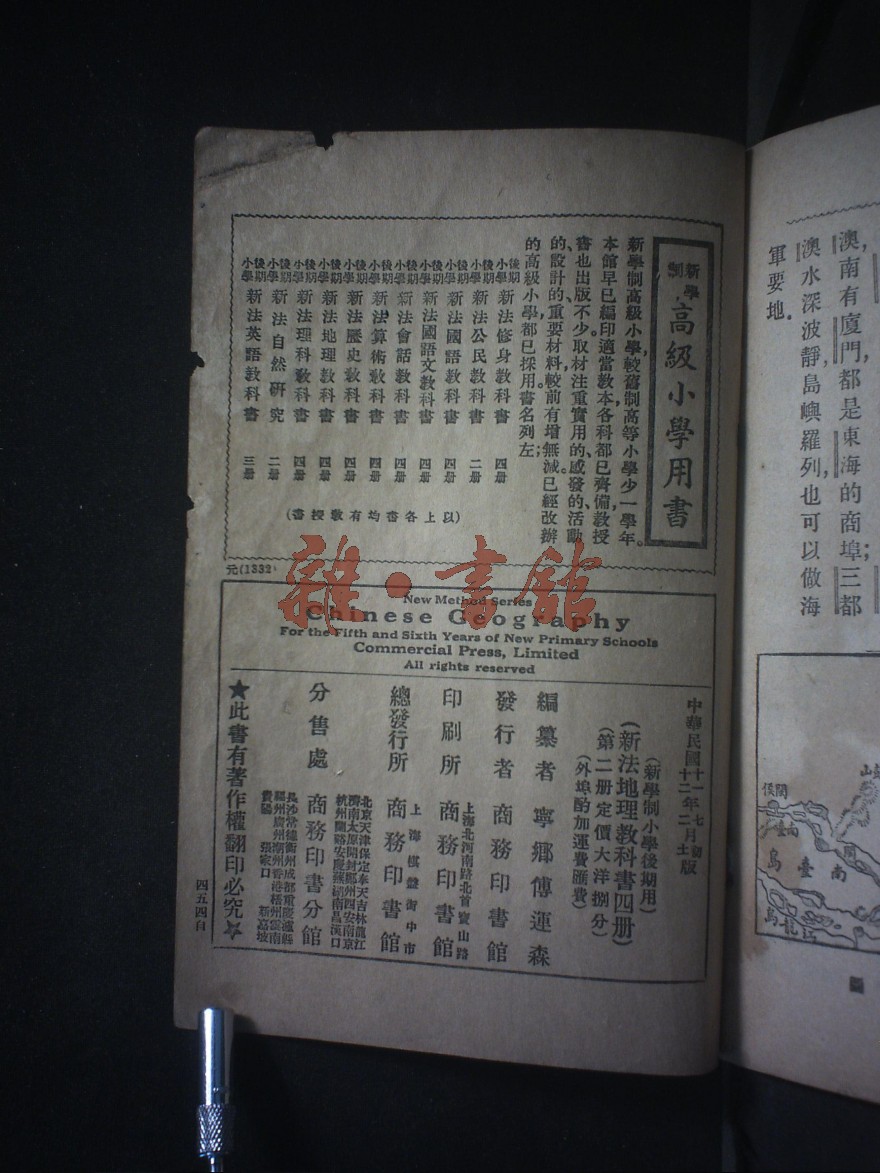 澳南有廈門都是東海的商埠三都
澳水深波靜島嶼羅列也可以做海
軍要地.
新學制
高級小學用書
新學制高級小學較舊制高等小學少一學年。
本館早已編印適當教本各科都已齊備教授
書也出版不少取材注重實用的、感發的、活動
的、設計的重要材料較前有增無減已經改辦
的高級小學都已採用書名列左;
後期小學 新法修身教科書 四册
後期小學 新法公民教科書 二册
後期小學 新法國語教科書 四册
後期小學 新法國語文教科書 四册
後期小學 新法會話教科書 四册
後期小學 新法算術教科書 四册
後期小學 新法歷史教科書 四册
後期小學 新法地理教科書 四册
後期小學 新法理科教科書 四册
後期小學 新法自然研究 二册
後期小學 新法英語教科書 三册
(以上各書均有教授書)
元(1332)
New Method Series
Chinese Geography
For the Fifth and Sixth Years of New Primary Schools
Commercial Press, Limited
All rights reserved
中華民國十一年七月初版
十二年二月
(新學制小學後期用)
(新法地理教科書四册)
(第二册定價大洋捌分)
(外埠酌加運費匯費)
編纂者 寧鄉傅運森
發行者 商務印書館
印刷所 上海北河南路北首寶山路 商務印書館
總發行所 上海棋盤街中市 商務印書館
分售處 商務印書分館
北京天津保定奉天吉林龍江
濟南太原開封鄭州西安南京
杭州蘭谿安慶蕪湖南昌漢口
長沙常德衡州成都重慶瀘縣
福州廣州潮州香港梧州雲南
貴陽 張家口 新嘉坡
★此書有著作權翻印必究★
四五四自
雜·書館